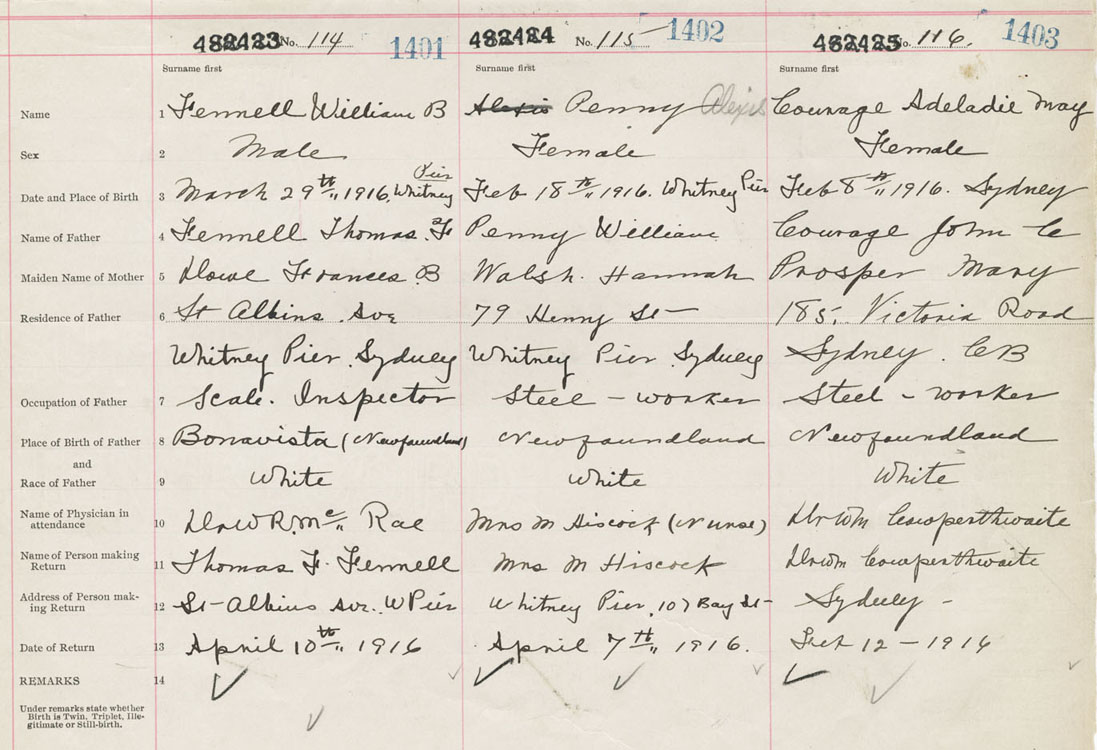 No. 114 1401 No. 115 1402 No. 116. 1403
Surname first Surname first Surname first
Name 1 Fennell William B Alexis Penny Alexis Courage Adeladie May
Sex 2 Male Female Female
Pier
Date and Place of Birth 3 March 29th, 1916, Whitney Feb 18th, 1916. Whitney Pier Feb 8th, 1916. Sydney
Name of Father 4 Fennell Thomas. F Penny William Courage John C
Maiden Name of Mother 5 Dowe Frances. B Walsh. Hannah Prosper Mary
Residence of Father 6 St Albins. Ave 79 Henry St 185. Victoria Road
Whitney Pier. Sydney Whitney Pier. Sydney Sydney. CB
Occupation of Father 7 Scale. Inspector Steel - worker Steel - worker
Place of Birth of Father 8 Bonavista (Newfoundland) Newfoundland Newfoundland
and
Race of Father 9 White White White
Name of Physician in
attendance 10 Dr W R. Mc Rae Mrs M Hiscock (Nurse) Dr Wm Cowperthwaite
Name of Person making
Return 11 Thomas F. Fennell Mrs M Hiscock Dr Wm Cowperthwaite
Address of Person mak-
ing Return 12 St-Albins Ave. W Pier Whitney Pier, 107 Bay St- Sydney -
Date of Return 13 April 10th, 1916 April 7th, 1916. Feb 12 - 1916
REMARKS 14
Under remarks state whether
Birth is Twin, Triplet, Ille-
gitimate or Still-birth.